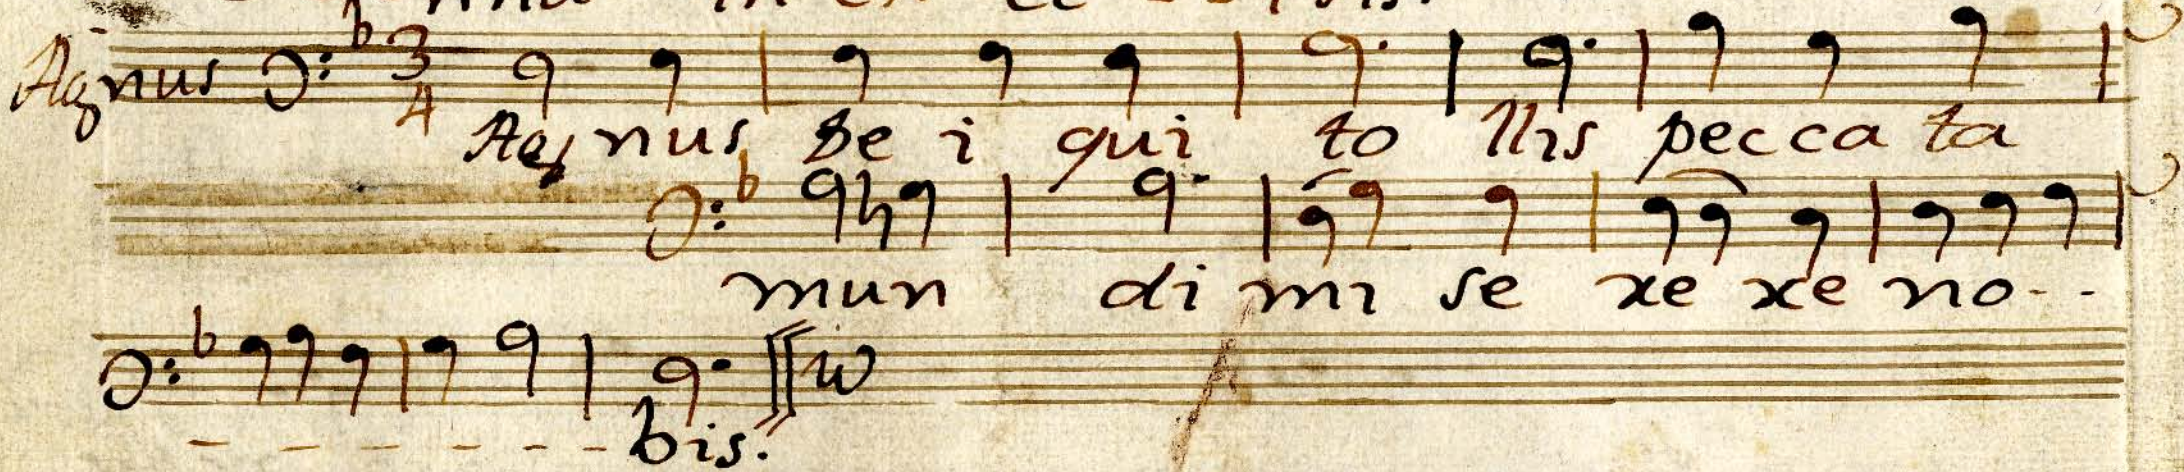 Agnus 3 4
Ag nus De i qui to llis pec ca ta
mun di mi se re re no - -
- - - - - - bis.